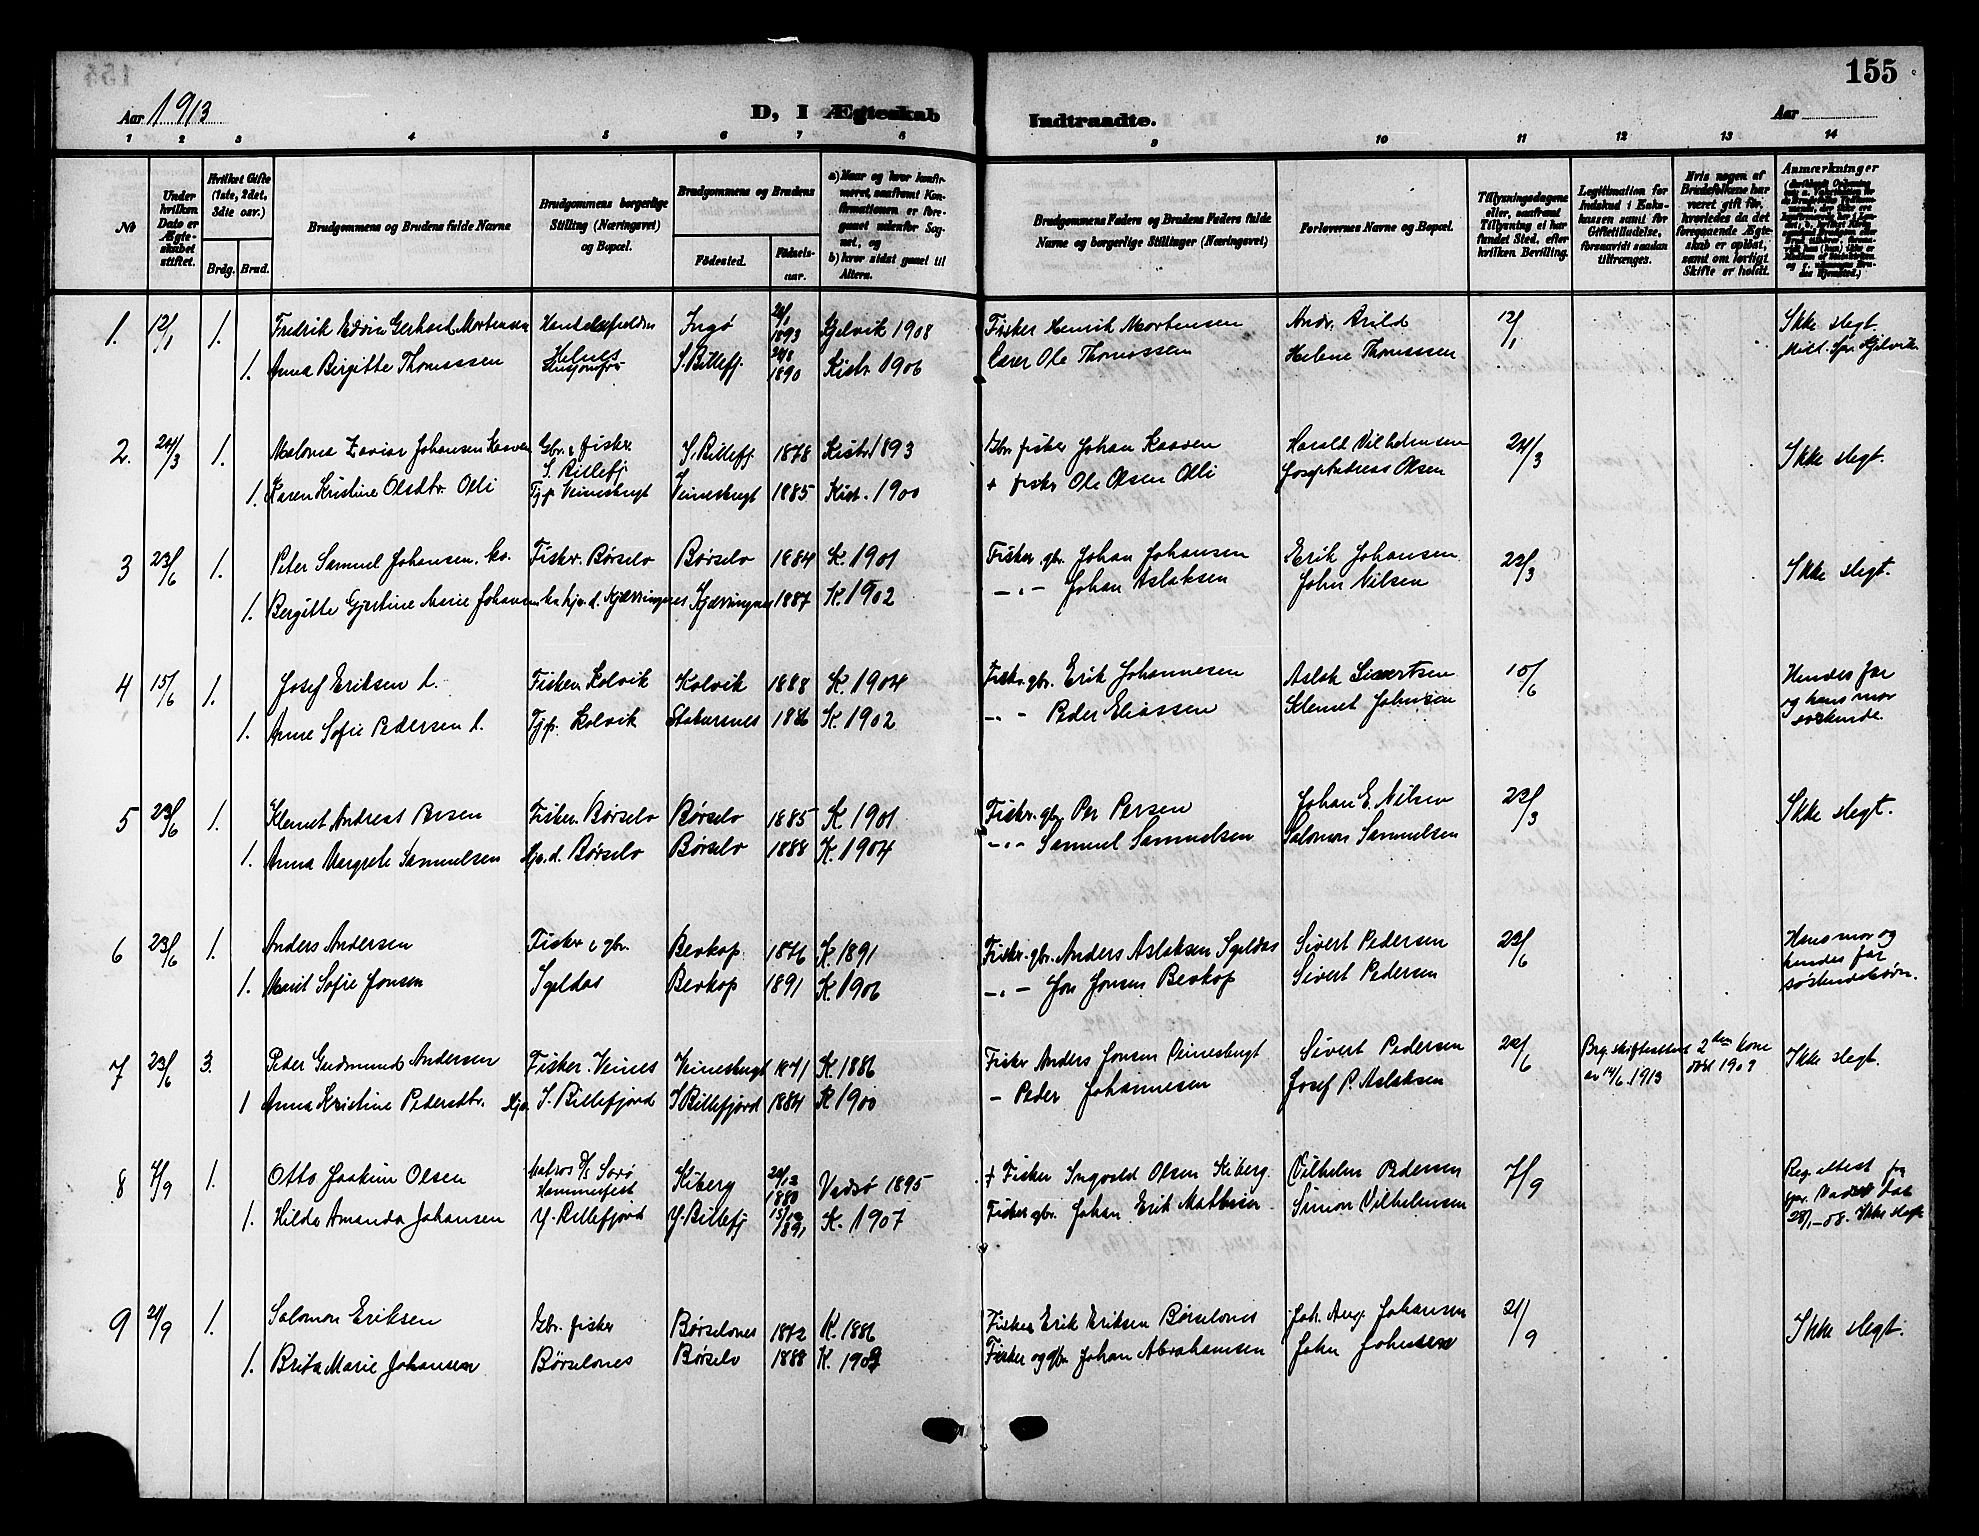 155
Aar 1913
D, I Ægteskab
Indtraadte.
Aar
1 2 3 4 5 6 7 8 9 10 11 12 13 14
№
Under hvilken Dato er Ægteskabet stiftet.
Hvilket Gifte (1ste, 2det, 3die osv.)
Brdg. Brud.
Brudgommens og Brudens fulde Navne
Brudgommens borgerlige Stilling (Næringsvei) og Bopæl.
Brudgommens og Brudens
Fødested.
Fødselsaar.
a) Naar og hvor konfirmeret, saafremt Konfirmationen er foregaaet udenfor Sognet, og
b) hvor sidst gaaet til Alters.
Brudgommens Faders og Brudens Faders fulde Navne og borgerlige Stillinger (Næringsvei)
Forlovernes Navne og Bopæl.
Tillysningsdagene eller, saafremt Tillysning ei har fundet Sted, efter hvilken Bevilling.
Legitimation for Indskud i Enkekassen samt for Giftetilladelse, forsaavidt saadan tiltrænges.
Hvis nogen af Brudefolkene har været gift før, hvorledes da det foregaaende Ægteskab er opløst, samt om lovligt Skifte er holdt.
Anmærkninger
1. 12/1 1. Fredrik Edvin Gerhard Mortensen Ingø 1893 Kjelvik 1908 Fisker Henrik Mortensen Andr. Arild 12/1 Ikke slegt.
1. Anna Birgitte Thomassen Helnes S. Billefj. 1890 Kistr. 1906 Lærer Ole Thomassen Helene Thomassen
2. 24/3 1. Johansen Kaaven Gbr. & fisker S. Billefj S. Billefj 1878 Kistr. 1893 Gbr fisker Johan Kaaven Harald Vilhelmsen 24/3 Ikke slegt.
1. Karen Kristine Olsdtr. Olli Tjp. Veinesbugt Veinesbugt 1885 Kist. 1900 + fisker Ole Olsen Olli Olsen
3 23/6 1. Peter Samuel Johansen. Fisker. Børselv Børselv 1884 K. 1901 Fisker gbr. Johan Johansen Erik Johansen 23/3 Ikke slegt.
1. Bergitte Gjertine Marie Johansen Kjærringnes Kjærringnes 1887 K. 1902 - " - Johan Aslaksen John Nilsen
4 15/6 1. Josef Eriksen l. Fisker Kolvik Kolvik 1888 K. 1904 Fisker. gbr. Erik Johannesen Aslak Sivertsen 15/6 Hendes far
og hans mor
søskende.
1. Anne Sofie Pedersen l. Tjp. Kolvik Stabursnes 1886 K. 1902 - " - Peder Eliassen Klemet Johnsen
5 23/6 1. Klemet Andreas Persen Fisker. Børselv Børselv 1885 K 1901 Fisker. gbr Per Persen Johan E. Nilsen 23/3 Ikke slegt.
1. Anna Margrete Samuelsen Hjv. d. Børselv Børselv 1888 K. 1904 - " - Samuel Samuelsen Salomon Samuelsen
6 23/6 1. Anders Andersen Fisker & gbr. Bevkop 1876 K. 1891 Fisker. gbr. Anders Aslaksen Igeldas Sivert Pedersen 23/6 Hans mor og
hendes far
søskendebørn.
1. Marit Sofie Jonsen Igeldas Bevkop 1891 K. 1906 - " - Jon Jonsen Bevkop Sivert Pedersen
7 23/6 3. Peder Gudmund Andersen Fisker. Veines Veinesbugt 1871 K. 1886 Fisker Anders Jonsen Veinesbugt Sivert Pedersen 22/6 Brg. skifteattest
av 14/6 1913 2den kone
død 1909 Ikke slegt.
1 Anna Kristine Pedersdtr. Hjv. S. Billefjord S Billefjord 1884 K 1900 - Peder Johannesen Josef P. Aslaksen
8 7/9 1. Otto Joakim Olsen Matros D/S Sorø Hammerfest Kiberg 1880 Vadsø 1895 + Fisker Ingvald Olsen Kiberg. Vilhelm Pedersen 7/9
1. Hilda Amanda Johansen Y. Billefjord Y. Billefj 1891 K. 1907 Fisker gbr. Johan Erik Mathisen Simon Vilhelmsen 28/1-08. Ikke slegt
9 21/9 1. Salomon Eriksen Gbr. fisker Børselvnes 1872 K. 1886 Fisker Erik Eriksen Børselvnes Joh. Aug. Johansen 21/9 Ikke slegt.
1. Brita Marie Johansen Børselvnes Børselv 1888 K. 1903 Fisker og gbr. Johan Abrahamsen John Johnsen